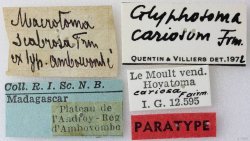 Macrotoma
scabrosa Frm
ex typ. ambovombé
Coll. R. I. Sc. N. B.
Madagascar
Plateau de
l'Androy - Reg
d'Ambovombe
Glyphosoma
cariosum Frm.
QUENTIN & VILLIERS det. 1972
Le Moult vend.
Hovatoma
cariosa Fairm.
I. G. 12.595
PARATYPE